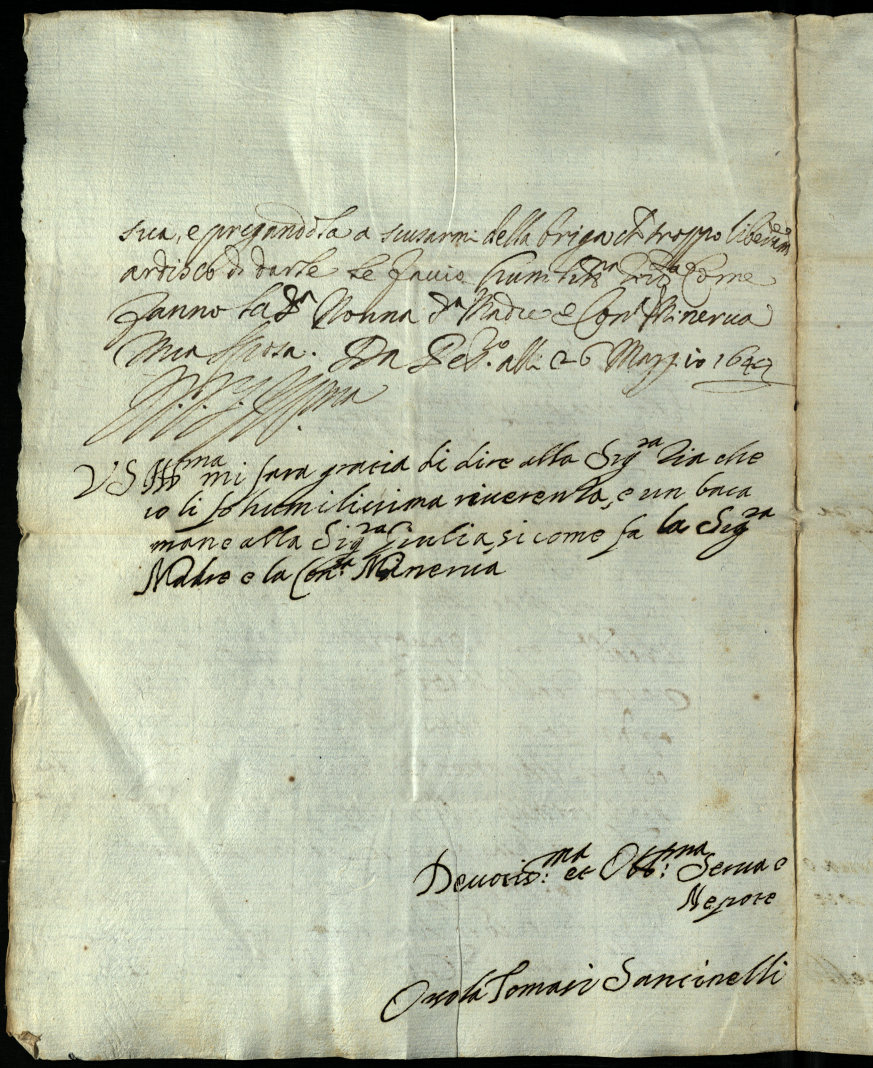 sua, e pregandola a scusarmi della briga ch troppo liberam.te
ardisco di darle le faccio humiliss.ma come
fanno la S.ra Nonna S.ra Madre e Con.a Minerua
mia sposa. Da alli 26 Maggio 1649
VS Ill.ma mi fara gracia di dire alla Sig.ra Zia che
io li fo humilissima riuerenza, e un bacia
mane alla Sig.ra Giulia, si come fa la Sig.ra
Madre e la Con.sa Minerua
Deuotis.ma et Obb.ma Serua e
Nepote
Orsola Tomasi Sancinelli